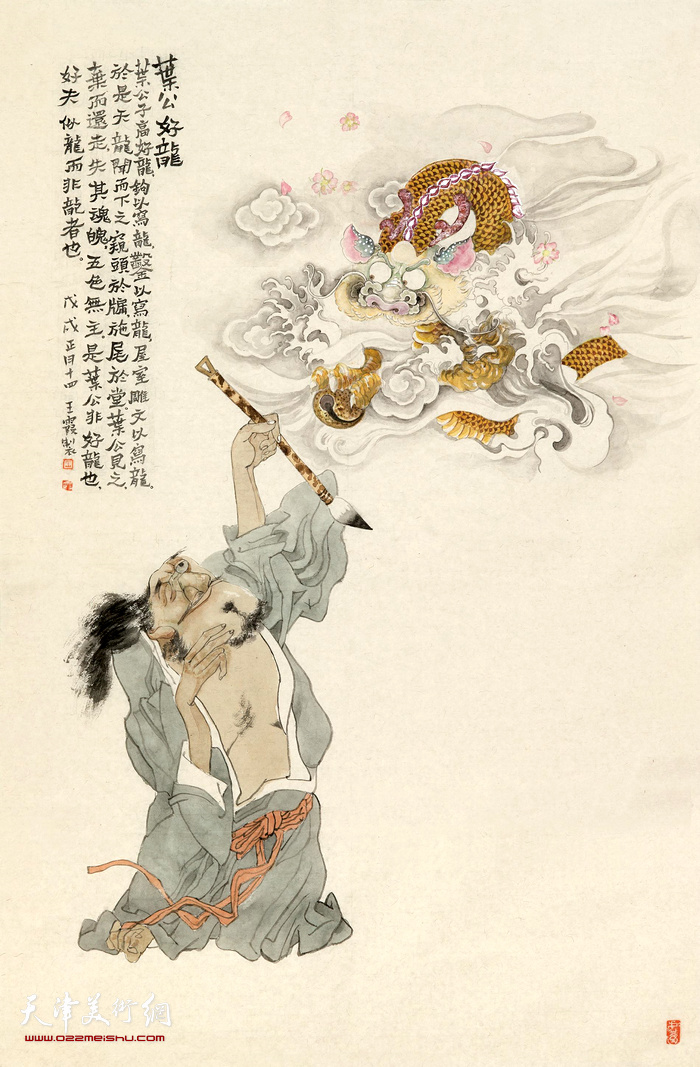 葉公好龍
葉公子高好龍，鉤以寫龍，鑿以寫龍，屋室雕文以寫龍。
於是天龍聞而下之，窺頭於牖，施尾於堂。葉公見之，
棄而還走，失其魂魄，五色無主。是葉公非好龍也，
好夫似龍而非龍者也。
戊戌正月十四 王霞製
天津美術網
www.ozzmeishu.com